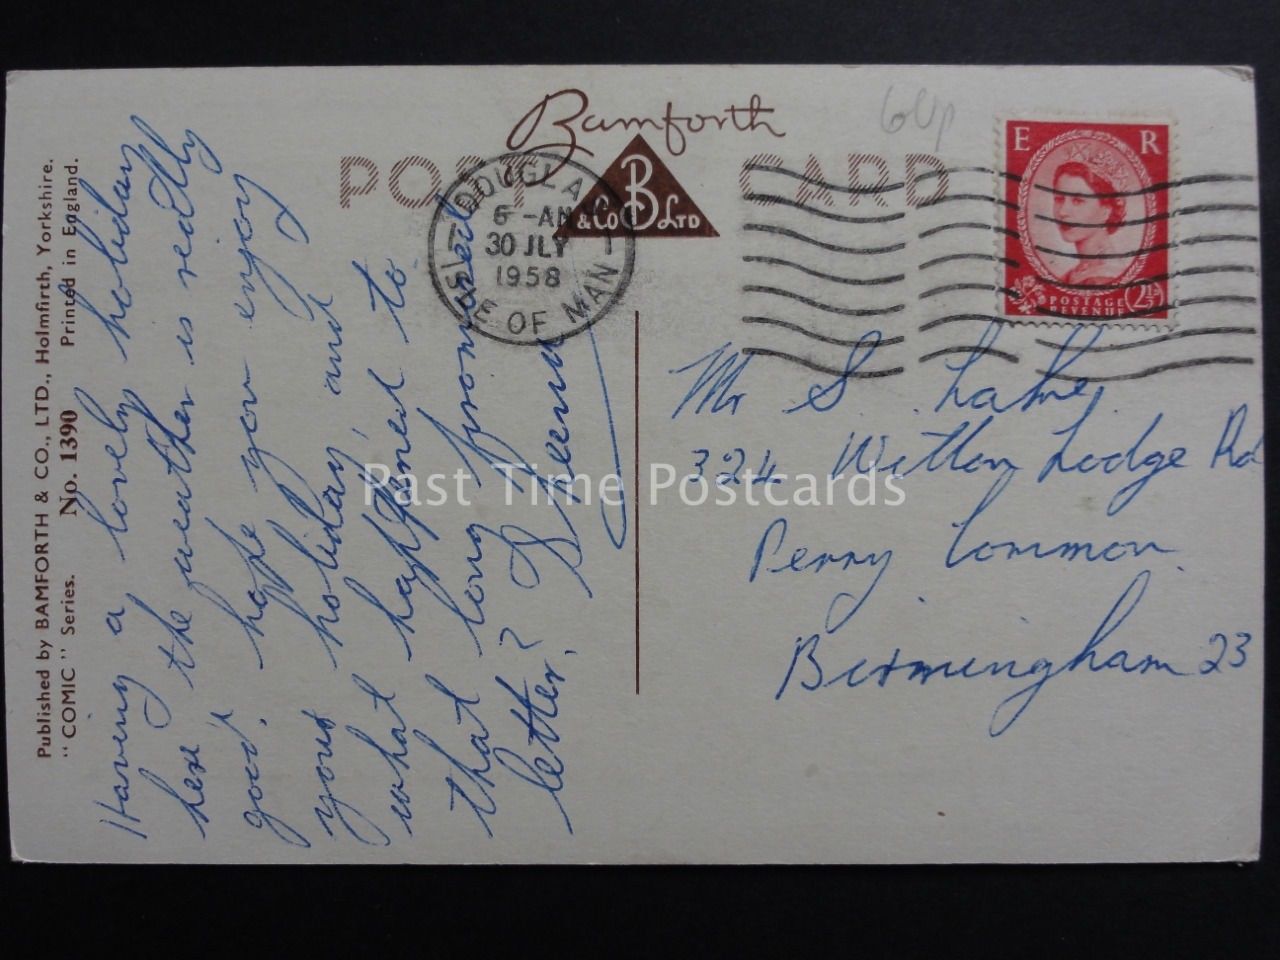 Published by BAMFORTH & CO., LTD., Holmfirth, Yorkshire.
"COMIC" Series. No. 1390 Printed in England.
Having a lovely holiday
here the weather is really
good, hope you enjoy
your holiday, and
what happened to
that long promised
letter?
Bamforth
POST CARD
& Co B LTD
DOUGLAS
6 - AM
30 JLY
1958
ISLE OF MAN
60p
E R
POSTAGE
REVENUE
2½D
Mr S. Lake,
324 Witton Lodge Rd
Perry Common
Birmingham 23
Past Time Postcards